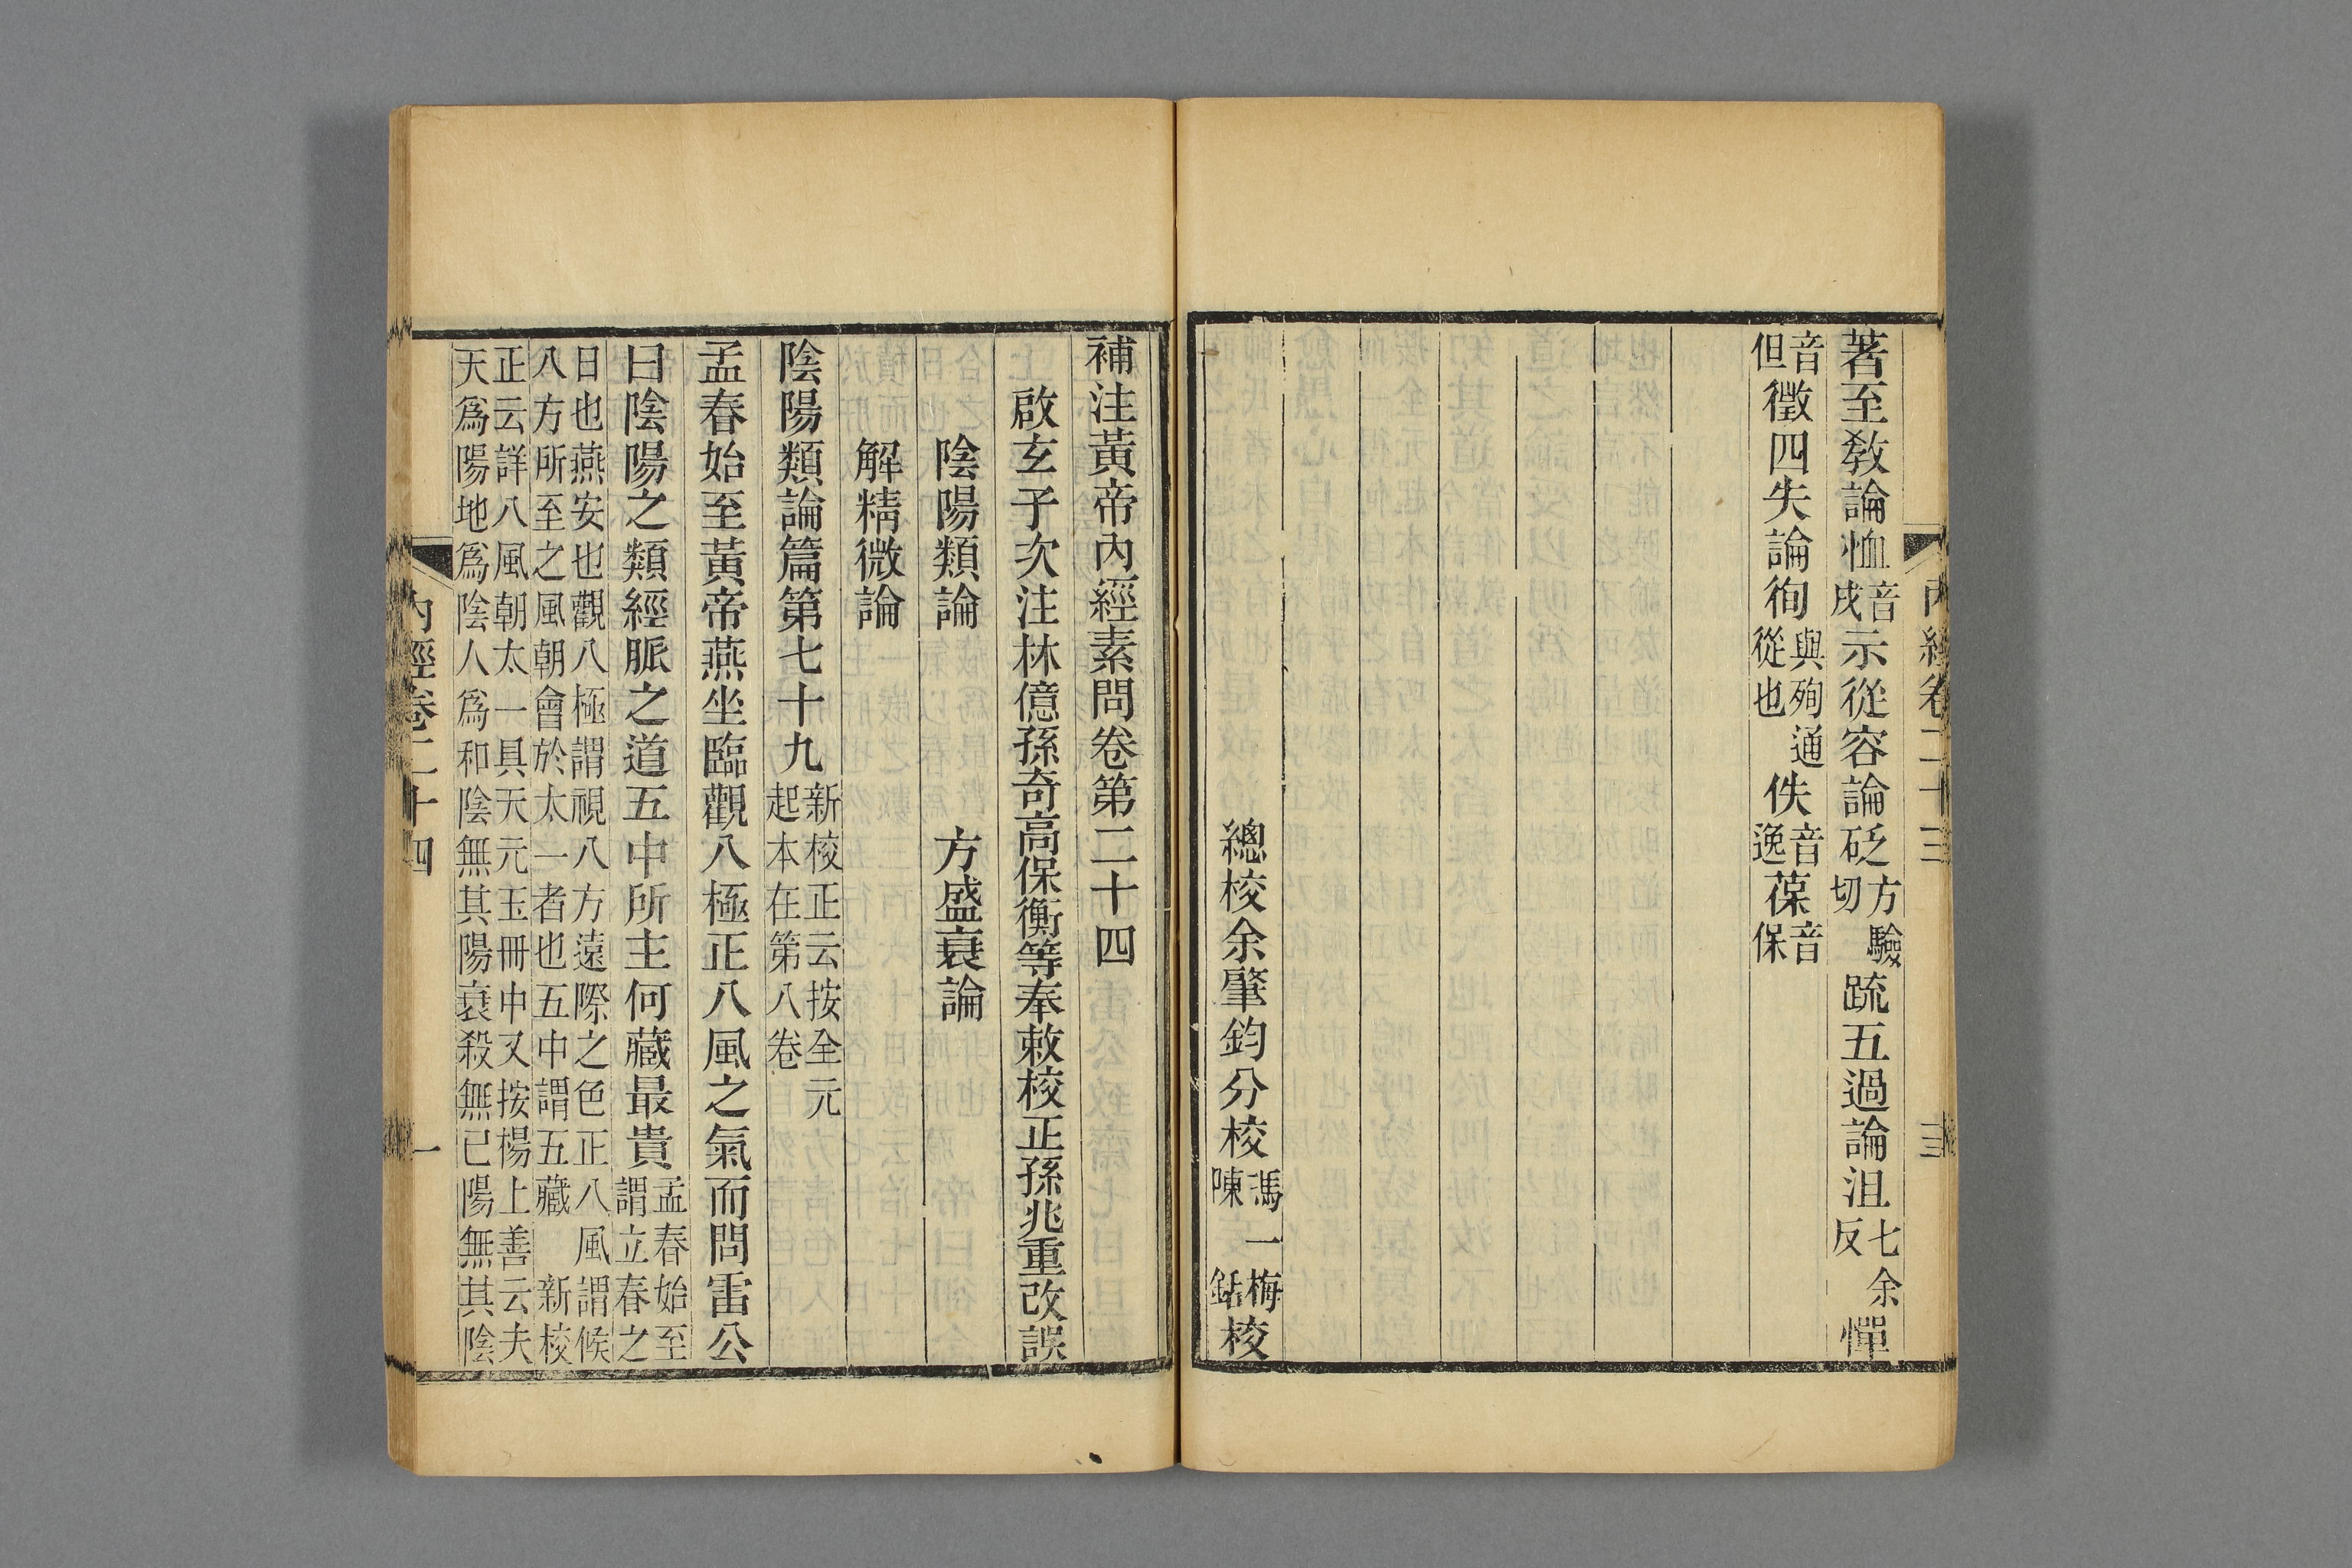 著至教論恤音戌示從容論砭方驗切䟽五過論沮七余反憚
音但徵四失論徇與殉通從也佚音逸葆音保
總校余肇鈞分校馮一梅陳銛校
內經卷二十三
補注黃帝內經素問卷第二十四
啟玄子次注林億孫奇高保衡等奉敕校正孫兆重改誤
陰陽類論 方盛衰論
解精微論
陰陽類論篇第七十九新校正云按全元起本在第八卷
孟春始至黃帝燕坐臨觀八極正八風之氣而問雷公
曰陰陽之類經脈之道五中所主何藏最貴孟春始至謂立春之
日也燕安也觀八極謂視八方遠際之色正八風謂候八方所至之風朝會於太一者也五中謂五藏 新校
正云詳八風朝太一具天元玉冊中又按楊上善云夫天為陽地為陰人為和陰無其陽衰殺無已陽無其陰
內經卷二十四
一